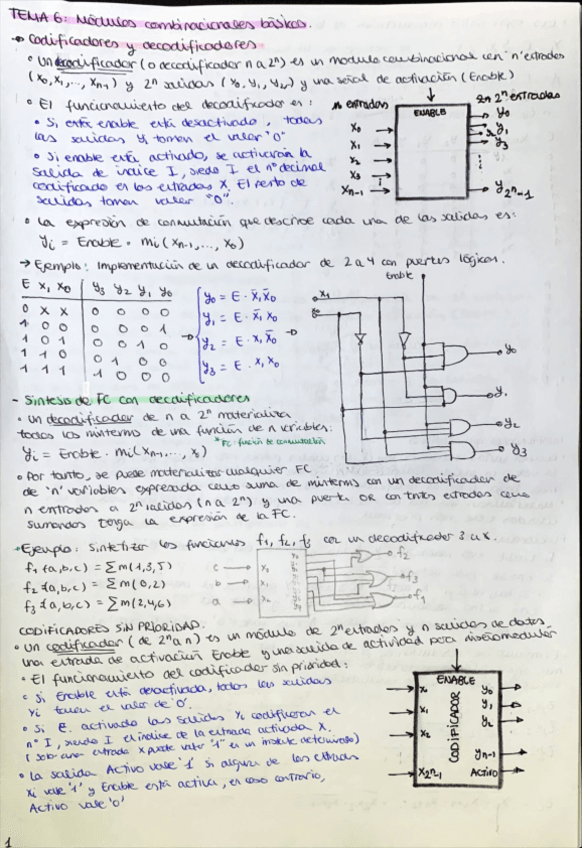 TEMA 6: Módulos combinacionales básicos.
→ Codificadores y decodificadores
• Un decodificador (o decodificador n a 2ⁿ) es un modulo combinacional con 'n' entradas
(x₀, x₁, ..., xₙ₋₁) y 2ⁿ salidas (y₀, y₁, y₂ⁿ) y una señal de activación (Enable)
• El funcionamiento del decodificador es:
• Si está enable está desactivado, todas
las salidas Yi toman el valor "0"
• Si enable está activado, se activarán la
salida de indice I, siendo I el nº decimal
codificado en las entradas X. El resto de
salidas toman valor "0".
n entradas
2n 2ⁿ entradas
ENABLE
x₀
x₁
x₂
x₃
xₙ₋₁
y₀
y₁
y₃
y₂ⁿ₋₁
• La expresión de conmutación que describe cada una de las salidas es:
yi = Enable · mi (xₙ₋₁, ..., x₀)
→ Ejemplo: Implementación de un decodificador de 2 a 4 con puertas lógicas.
Enable
E x₁ x₀ y₃ y₂ y₁ y₀
0 X X 0 0 0 0
1 0 0 0 0 0 1
1 0 1 0 0 1 0
1 1 0 0 1 0 0
1 1 1 1 0 0 0
y₀ = E · x̄₁x̄₀
y₁ = E · x̄₁ x₀
y₂ = E · x₁ x̄₀
y₃ = E · x₁ x₀
x₁
x₀
y₀
y₁
y₂
y₃
- Síntesis de FC con decodificadores
• Un decodificador de n a 2ⁿ materializa
todos los minterms de una función de n variables:
*FC: función de conmutación
yi = Enable · mi (xₙ₋₁, ..., x₀)
• Por tanto, se puede materializar cualquier FC
de 'n' variables expresada como suma de minterms con un decodificador de
n entradas a 2ⁿ salidas (n a 2ⁿ) y una puerta OR con tantas entradas como
sumandos tenga la expresión de la FC.
→ Ejemplo: Sintetizar las funciones f₁, f₂, f₃ con un decodificador 3 a 8.
f₁ (a,b,c) = ∑m(1,3,5)
f₂ (a,b,c) = ∑m(0,2)
f₃ (a,b,c) = ∑m(2,4,6)
c
b
a
f₂
f₃
f₁
CODIFICADORES SIN PRIORIDAD.
• Un codificador (de 2ⁿ a n) es un módulo de 2ⁿ entradas y n salidas de datos,
una entrada de activación Enable y una salida de actividad para diseño modular
• El funcionamiento del codificador sin prioridad:
• Si Enable está desactivada, todas las salidas
Yi toman el valor de '0'.
• Si E. activado las salidas Yi codificarán el
nº I, siendo I el indice de la entrada activada X.
(solo una entrada X puede valer "1" en un instante determinado)
• La salida Activo vale '1' si alguna de las entradas
Xi vale '1' y Enable está activa, en caso contrario,
Activo vale '0'
ENABLE
CODIFICADOR
x₀
x₁
x₂
x₂ⁿ₋₁
y₀
y₁
y₂
yₙ₋₁
Activo
1